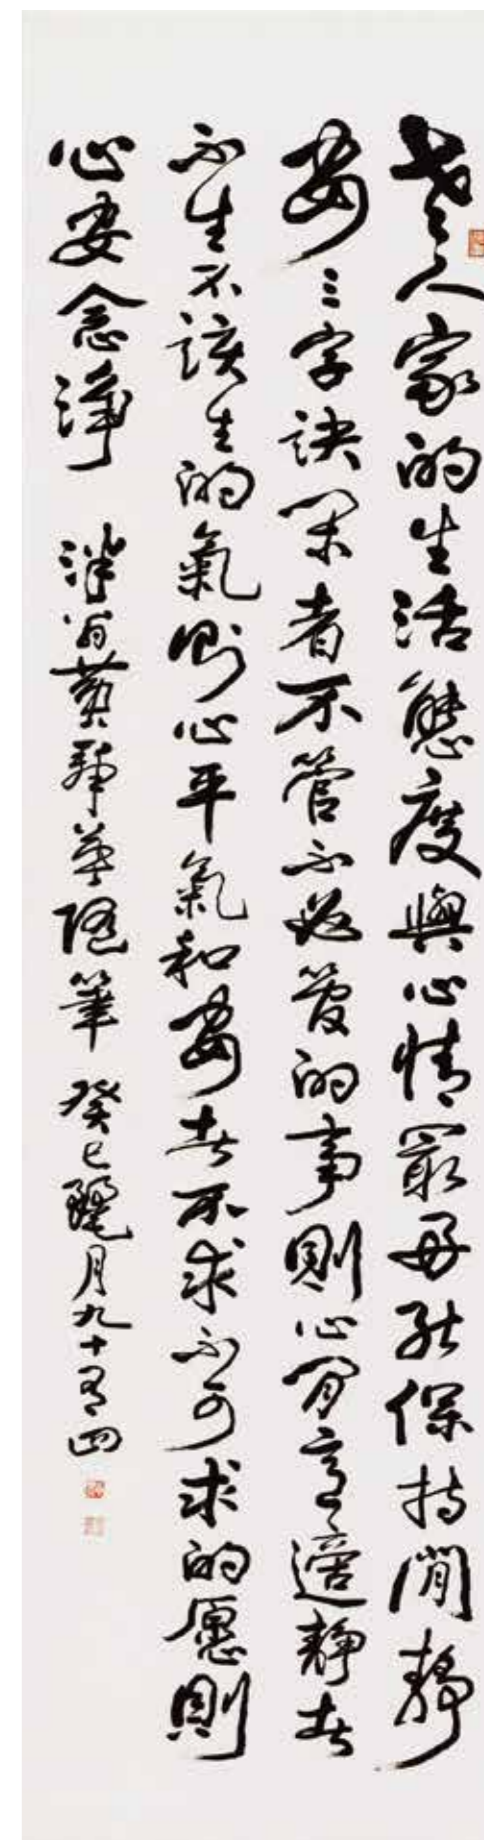 老人家的生活態度與心情最好能保持閒靜
安三字訣閒者不管不必管的事則心閒意適靜者
不生不該生的氣則心平氣和安者不求不可求的愿則
心安念淨 翁黃隨筆 癸巳月九十有四